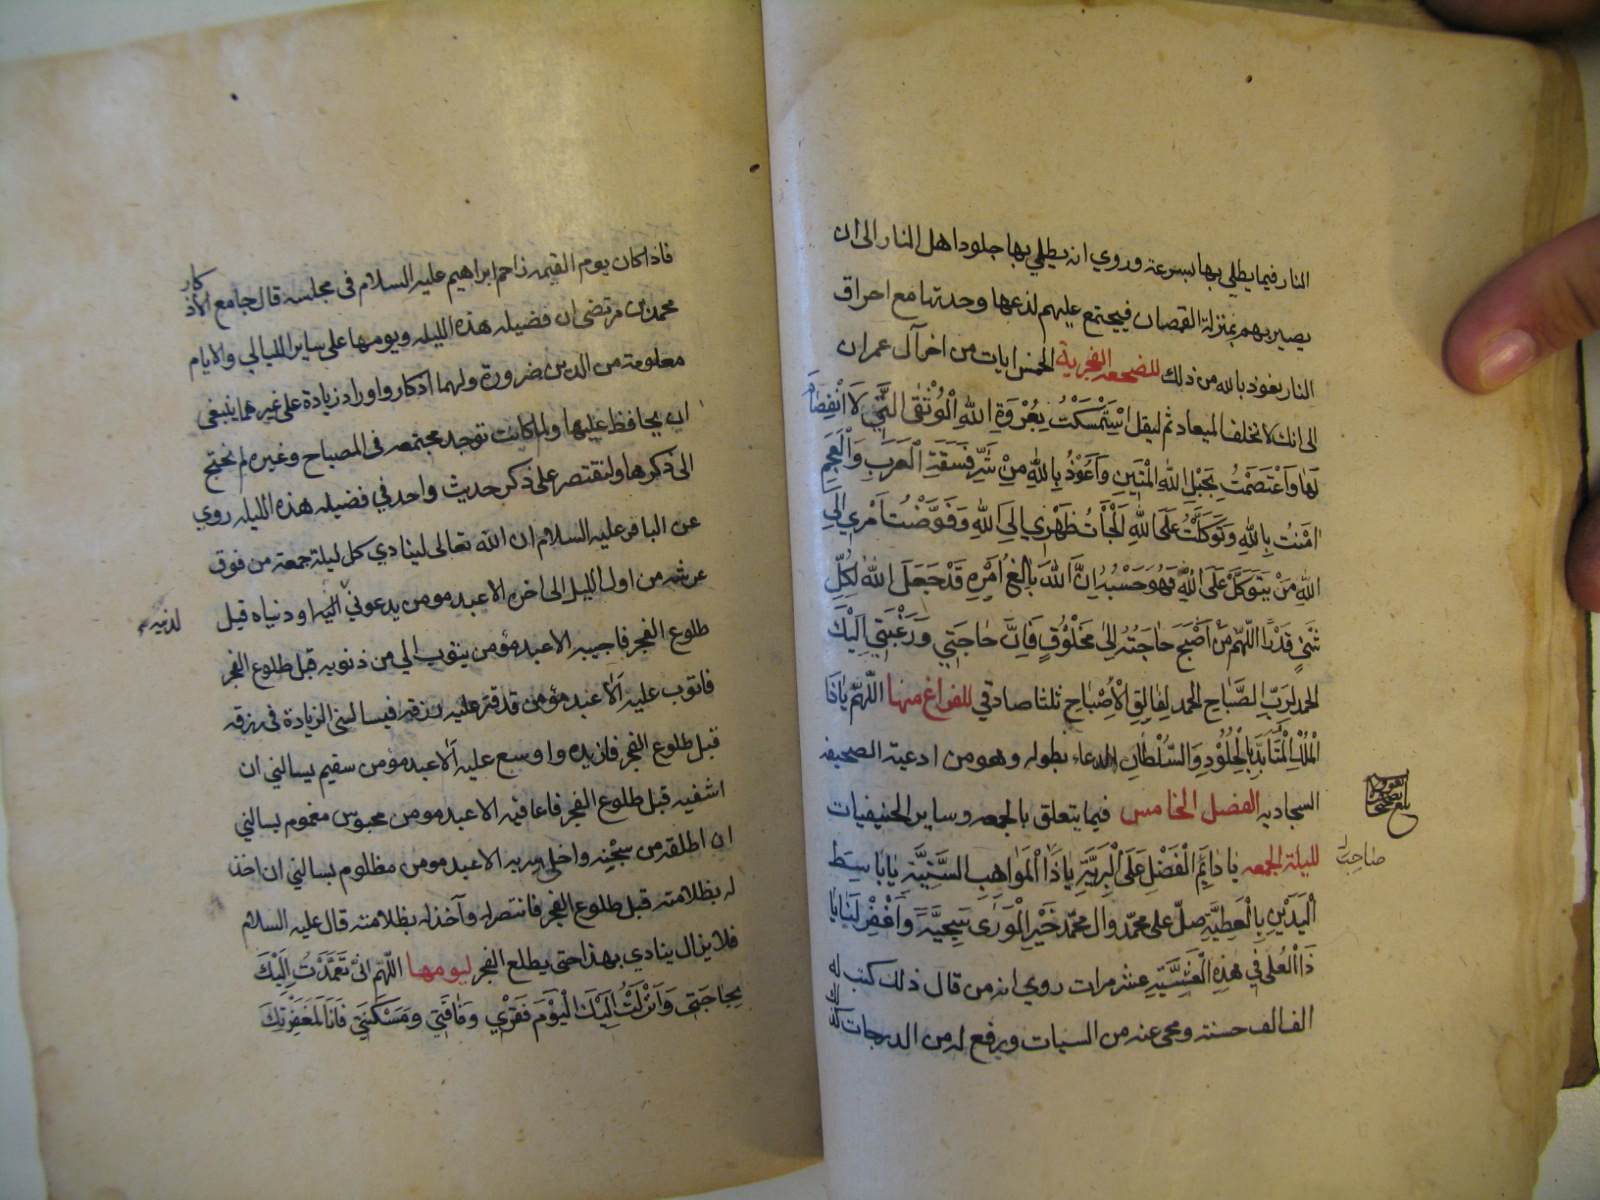 النار فيما يطلي بها بسرعة وروي انه يطلي بها جلود اهل النار الى ان
يصير بهم بمنزلة القمصان فيجتمع عليهم لذعها وحدتها مع احراق
النار نعوذ بالله من ذلك للضجعه الفجرية الخمس ايات من اخر آل عمران
الى انك لا تخلف الميعاد ثم ليقل اسْتَمْسَكْتُ بِعُرْوَةِ اللهِ الْوُثْقَى الَّتِي لَا انْفِصَامَ
لَهَا وَاعْتَصَمْتُ بِحَبْلِ اللهِ الْمَتِينِ وَاَعُوذُ بِاللهِ مِنْ شَرِّ فَسَقَةِ الْعَرَبِ وَالْعَجَمِ
امَنْتُ بِاللهِ وَتَوَكَّلْتُ عَلَى اللهِ اَلْجَأْتُ ظَهْرِي اِلَى اللهِ وَفَوَّضْتُ اَمْرِي اِلَى
اللهِ مَنْ يَتَوَكَّلْ عَلَى اللهِ فَهُوَ حَسْبُهُ اِنَّ اللهَ بَالِغُ اَمْرِهِ قَدْ جَعَلَ اللهُ لِكُلِّ
شَيْءٍ قَدْرًا اللّهمّ مَنْ اَصْبَحَ حَاجَتُهُ اِلَى مَخْلُوقٍ فَاِنَّ حَاجَتِي وَرَغْبَتِي اِلَيْكَ
الحمد لِرَبِّ الصَّبَاحِ الحمد لِفَالِقِ الْاِصْبَاحِ ثلثا صادقي للفراغ منها اللّهمّ يَا ذَا
الْمُلْكِ الْمُتَأَبِّدِ بِالْخُلُودِ وَالسُّلْطَانِ الدعاء بطوله وهو من ادعية الصحيفه
السجاديه الفصل الخامس فيما يتعلق بالجمعه وساير الحنيفيات
للیلة الجمعه يَا دَائِمَ الْفَضْلِ عَلَى الْبَرِيَّةِ يَا ذَا الْمَوَاهِبِ السَّنِيَّةِ يَا بَاسِطَ
صَاحِبَ
الْيَدَيْنِ بِالْعَطِيَّةِ صلّ على محمّد وال محمّد خَيْرِ الْوَرَى سَجِيَّةً وَاغْفِرْ لَنَا يَا
ذَا الْعُلَى فِي هَذِهِ الْعَشِيَّةِ عشر مرات روي انه من قال ذلك كتب له
الف الف حسنة ومحي عنه من السيات ورفع له من الدرجات
فاذا كان يوم القيمه زاحم ابراهيم عليه السلام في مجلسه قال جامع الاذكار
محمد بن مرتضى ان فضيله هذه الليله ويومها على ساير الليالي والايام
معلومة من الدين ضرورة ولهما اذكار واوراد زيادة على غيرهما ينبغي
ان يحافظ عليها ولما كانت توجد مجتمعه في المصباح وغيره لم نحتج
الى ذكرها ولنقتصر على ذكر حديث واحد في فضيله هذه الليله روي
عن الباقر عليه السلام ان الله تعالى لينادي كل ليلة جمعة من فوق
عرشه من اول الليل الى اخره الا عبد مومن يدعوني او دنياه قبل
لدينه
طلوع الفجر فاجيبه الا عبد مؤمن يتوب الي من ذنوبه قبل طلوع الفجر
فاتوب عليه اَلَا عبد مؤمن قد قترعليه رزقه فيسالني الزيادة في رزقه
قبل طلوع الفجر فازيده واوسع عليه اَلا عبد مؤمن سقيم يسالني ان
اشفيه قبل طلوع الفجر فاعافيه الا عبد مومن محبوس مغموم يسالني
ان اطلقه من سجنه واخلي سربه الا عبد مومن مظلوم يسالني ان اخذ
له بظلامته قبل طلوع الفجر فانتصر له وآخذ له بظلامته قال عليه السلام
فلا يزال ينادي بهذا حتى يطلع الفجر ليومها اللّهمّ انّي تَعَمَّدْتُ اِلَيْكَ
بِحَاجَتِي وَاَنْزَلْتُ اِلَيْكَ الْيَوْمَ فَقْرِي وَفَاقَتِي وَمَسْكَنَتِي فَاَنَا لِمَغْفِرَتِكَ